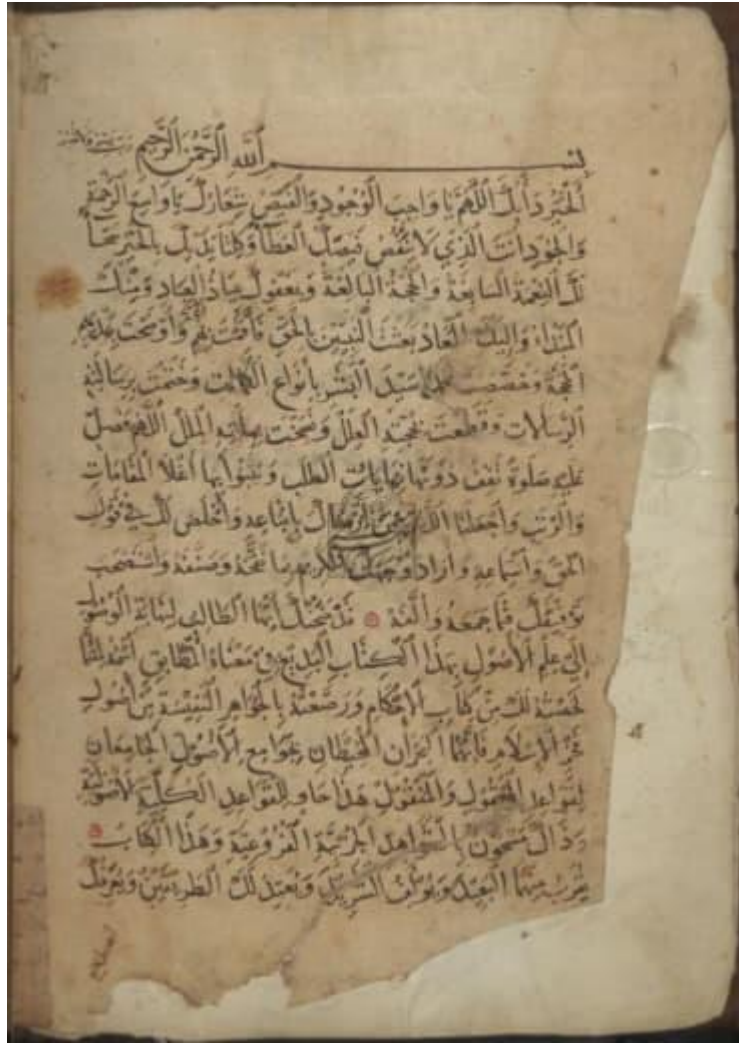 بسم الله الرحمن الرحيم
الخير دأبك اللهم يا واجب الوجود والفيض شعارك يا واسع الرحمة
والجود انت الذي لا ينقص فيضك العطاء
لك النعمة السابغة والحجة البالغة وبعفوك عياذ العباد ومنك
المبدأ واليك المعاد بعثت النبيين بالحق فأقمت بهم وأوضحت بهديهم
المحجة وخصصت محمدا سيد البشر بأنواع الكمالات وختمت برسالته
الرسالات وقطعت بحجته العلل ونسخت بملته الملل اللهم فصل
عليه صلوة تقف دونها غايات الطلب وتتبوأ بها أعلا المقامات
والرتب واجعلنا اللهم بإتباعه وأخلص لك في قول
الحق واتباعه وأراد وجهك الكريم بما نقحه وصنفه واستصحب
توفيقك فيما جمعه وألفه قد منحتك أيها الطالب لنهاية الوصول
إلى علم الأصول بهذا الكتاب البديع في معناه المطابق اسمه لمسماه
لخصته لك من كتاب الإحكام ورصعته بالجواهر النفيسة من أصول
فخر الإسلام فإنهما البحران المحيطان بجوامع الأصول الجامعان
لقواعد المعقول والمنقول هذا حاو للقواعد الكلية الأصولية
وذاك مشحون بالشواهد الجزئية الفروعية وهذا الكتاب
يقرب منهما البعيد ويؤلف الشريد ويعبد لك الطريقين ويعرفك